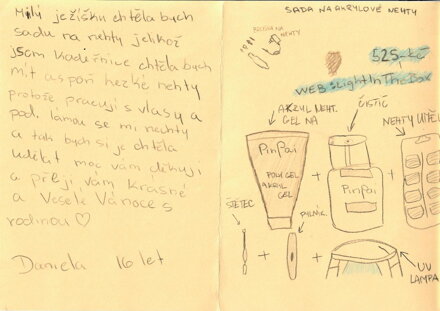 Milý ježíšku chtěla bych
sadu na nehty jelikož
jsem Kadeřnice chtěla bych
mít aspoň hezké nehty
protože, pracuji s vlasy a
podi lamou se mi nechty
a tak bych si je chtěla
udělat moc vám děkuji
a přeji vám Krásné
a Veselé Vánoce s
rodinou ♡
Daniela 16 let
SADA NA AKRYLOVÉ NEHTY
NEHTY
525 Kč
WEB: LightInTheBox
AKRYL NEHT.
GEL NA
ČISTÍČ
NEHTY UMĚL
PinPai
POLY GEL
AKRYL
GEL
+
PinPai
+
ŠTĚTEC
PILNÍK
+
+
UV
LAMPA